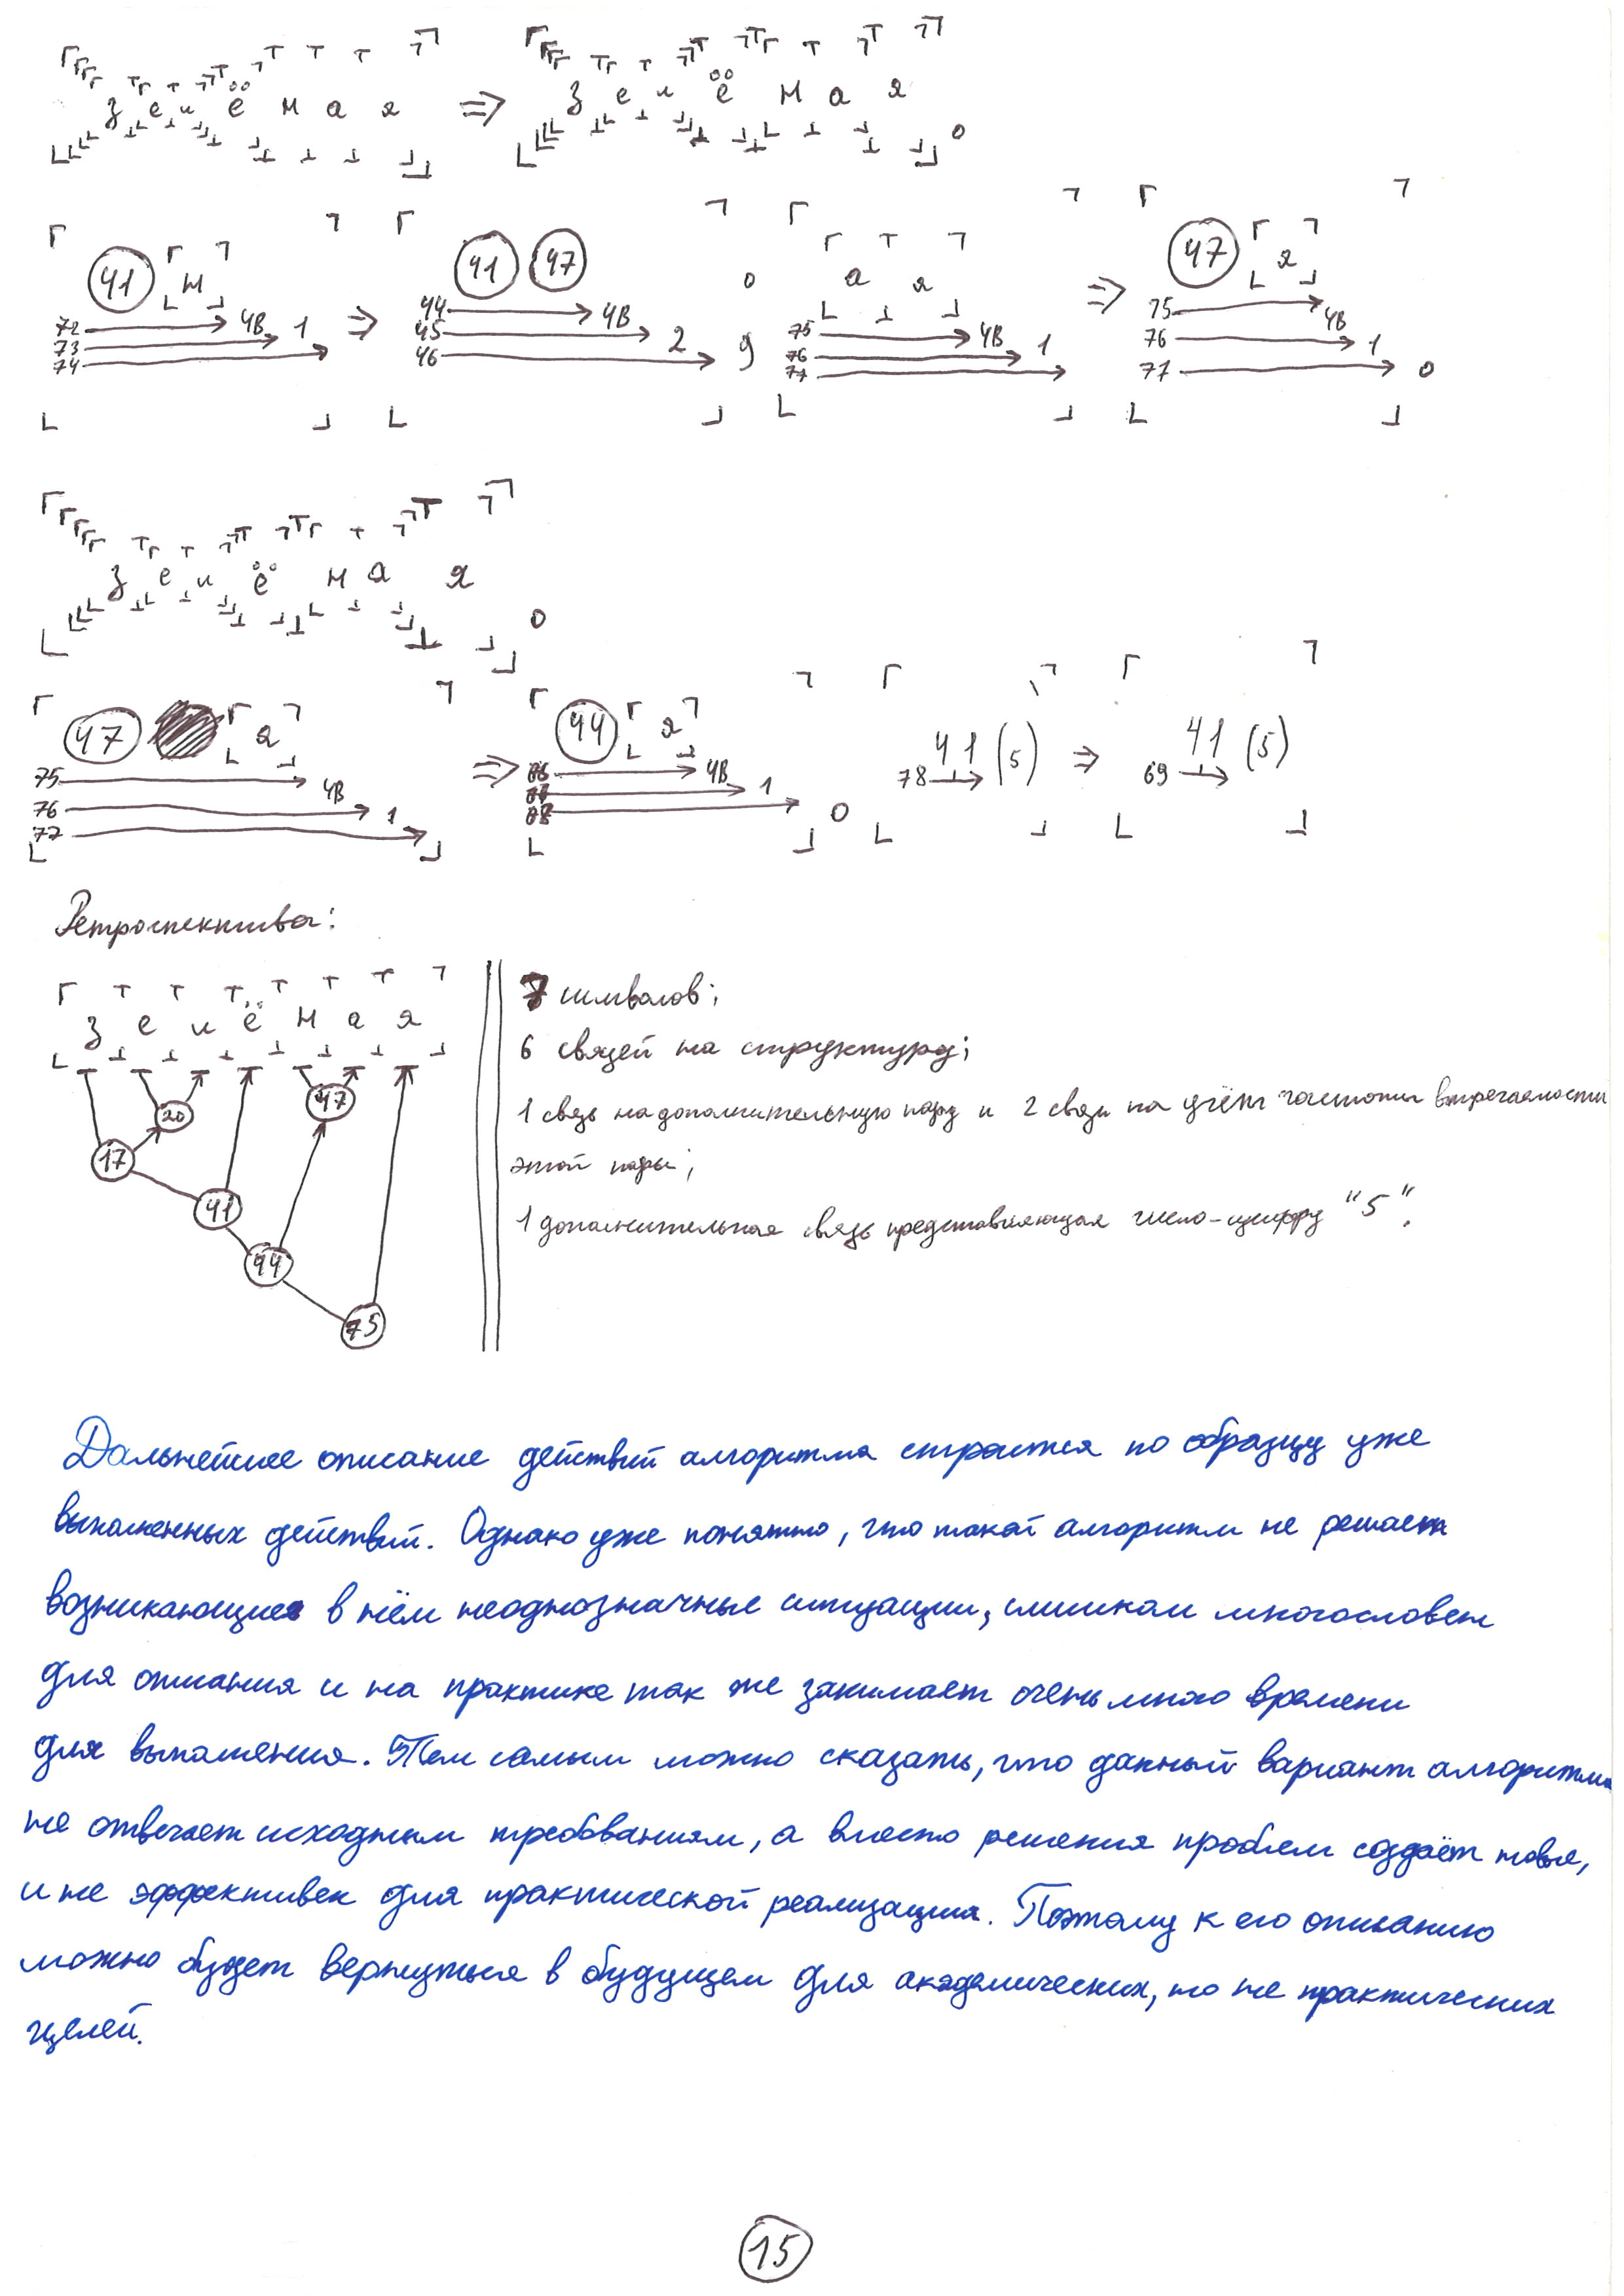 з е л ё н а я ⇒ з е л ё н а я о
41 н ⇒ 41 47 о а я ⇒ 47 я
72 ЧВ 1 44 ЧВ 75 ЧВ 75 ЧВ
73 45 2 76 1 76 1
74 46 77 77 о
з е л ё н а я о
47 я ⇒ 44 я 78 41 (5) ⇒ 69 41 (5)
75 ЧВ ЧВ
76 1 1
77 о
Ретроспектива:
з е л ё н а я
20 47
17
41
44
75
7 символов;
6 связей на структуру;
1 связь на дополнительную пару и 2 связи на учёт частоты встречаемости
этой пары;
1 дополнительная связь представляющая число-цифру "5".
Дальнейшее описание действий алгоритма строится по образцу уже
выполненных действий. Однако уже понятно, что такой алгоритм не решает
возникающие в нём неоднозначные ситуации, слишком многословен
для описания и на практике так же занимает очень много времени
для выполнения. Тем самым можно сказать, что данный вариант алгоритма
не отвечает исходным требованиям, а вместо решения проблем создаёт новые,
и не эффективен для практической реализации. Поэтому к его описанию
можно будет вернуться в будущем для академических, но не практических
целей.
15